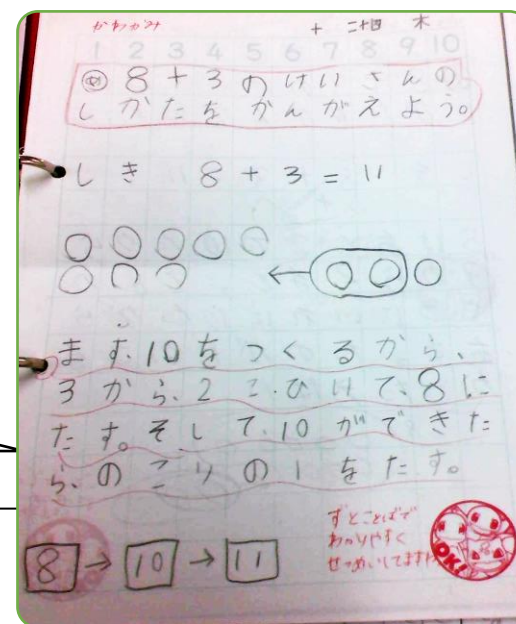 かわかみ
十 二十四 木
1 2 3 4 5 6 7 8 9 10
め 8+3のけいさんの
しかたをかんがえよう。
しき 8+3=11
まず、10をつくるから、
3から、2こ、ひいて、8に
たす。そして、10ができた
ら、のこりの1をたす。
8→10→11
ずとことばで
わかりやすく
せつめいしてますね
OK!